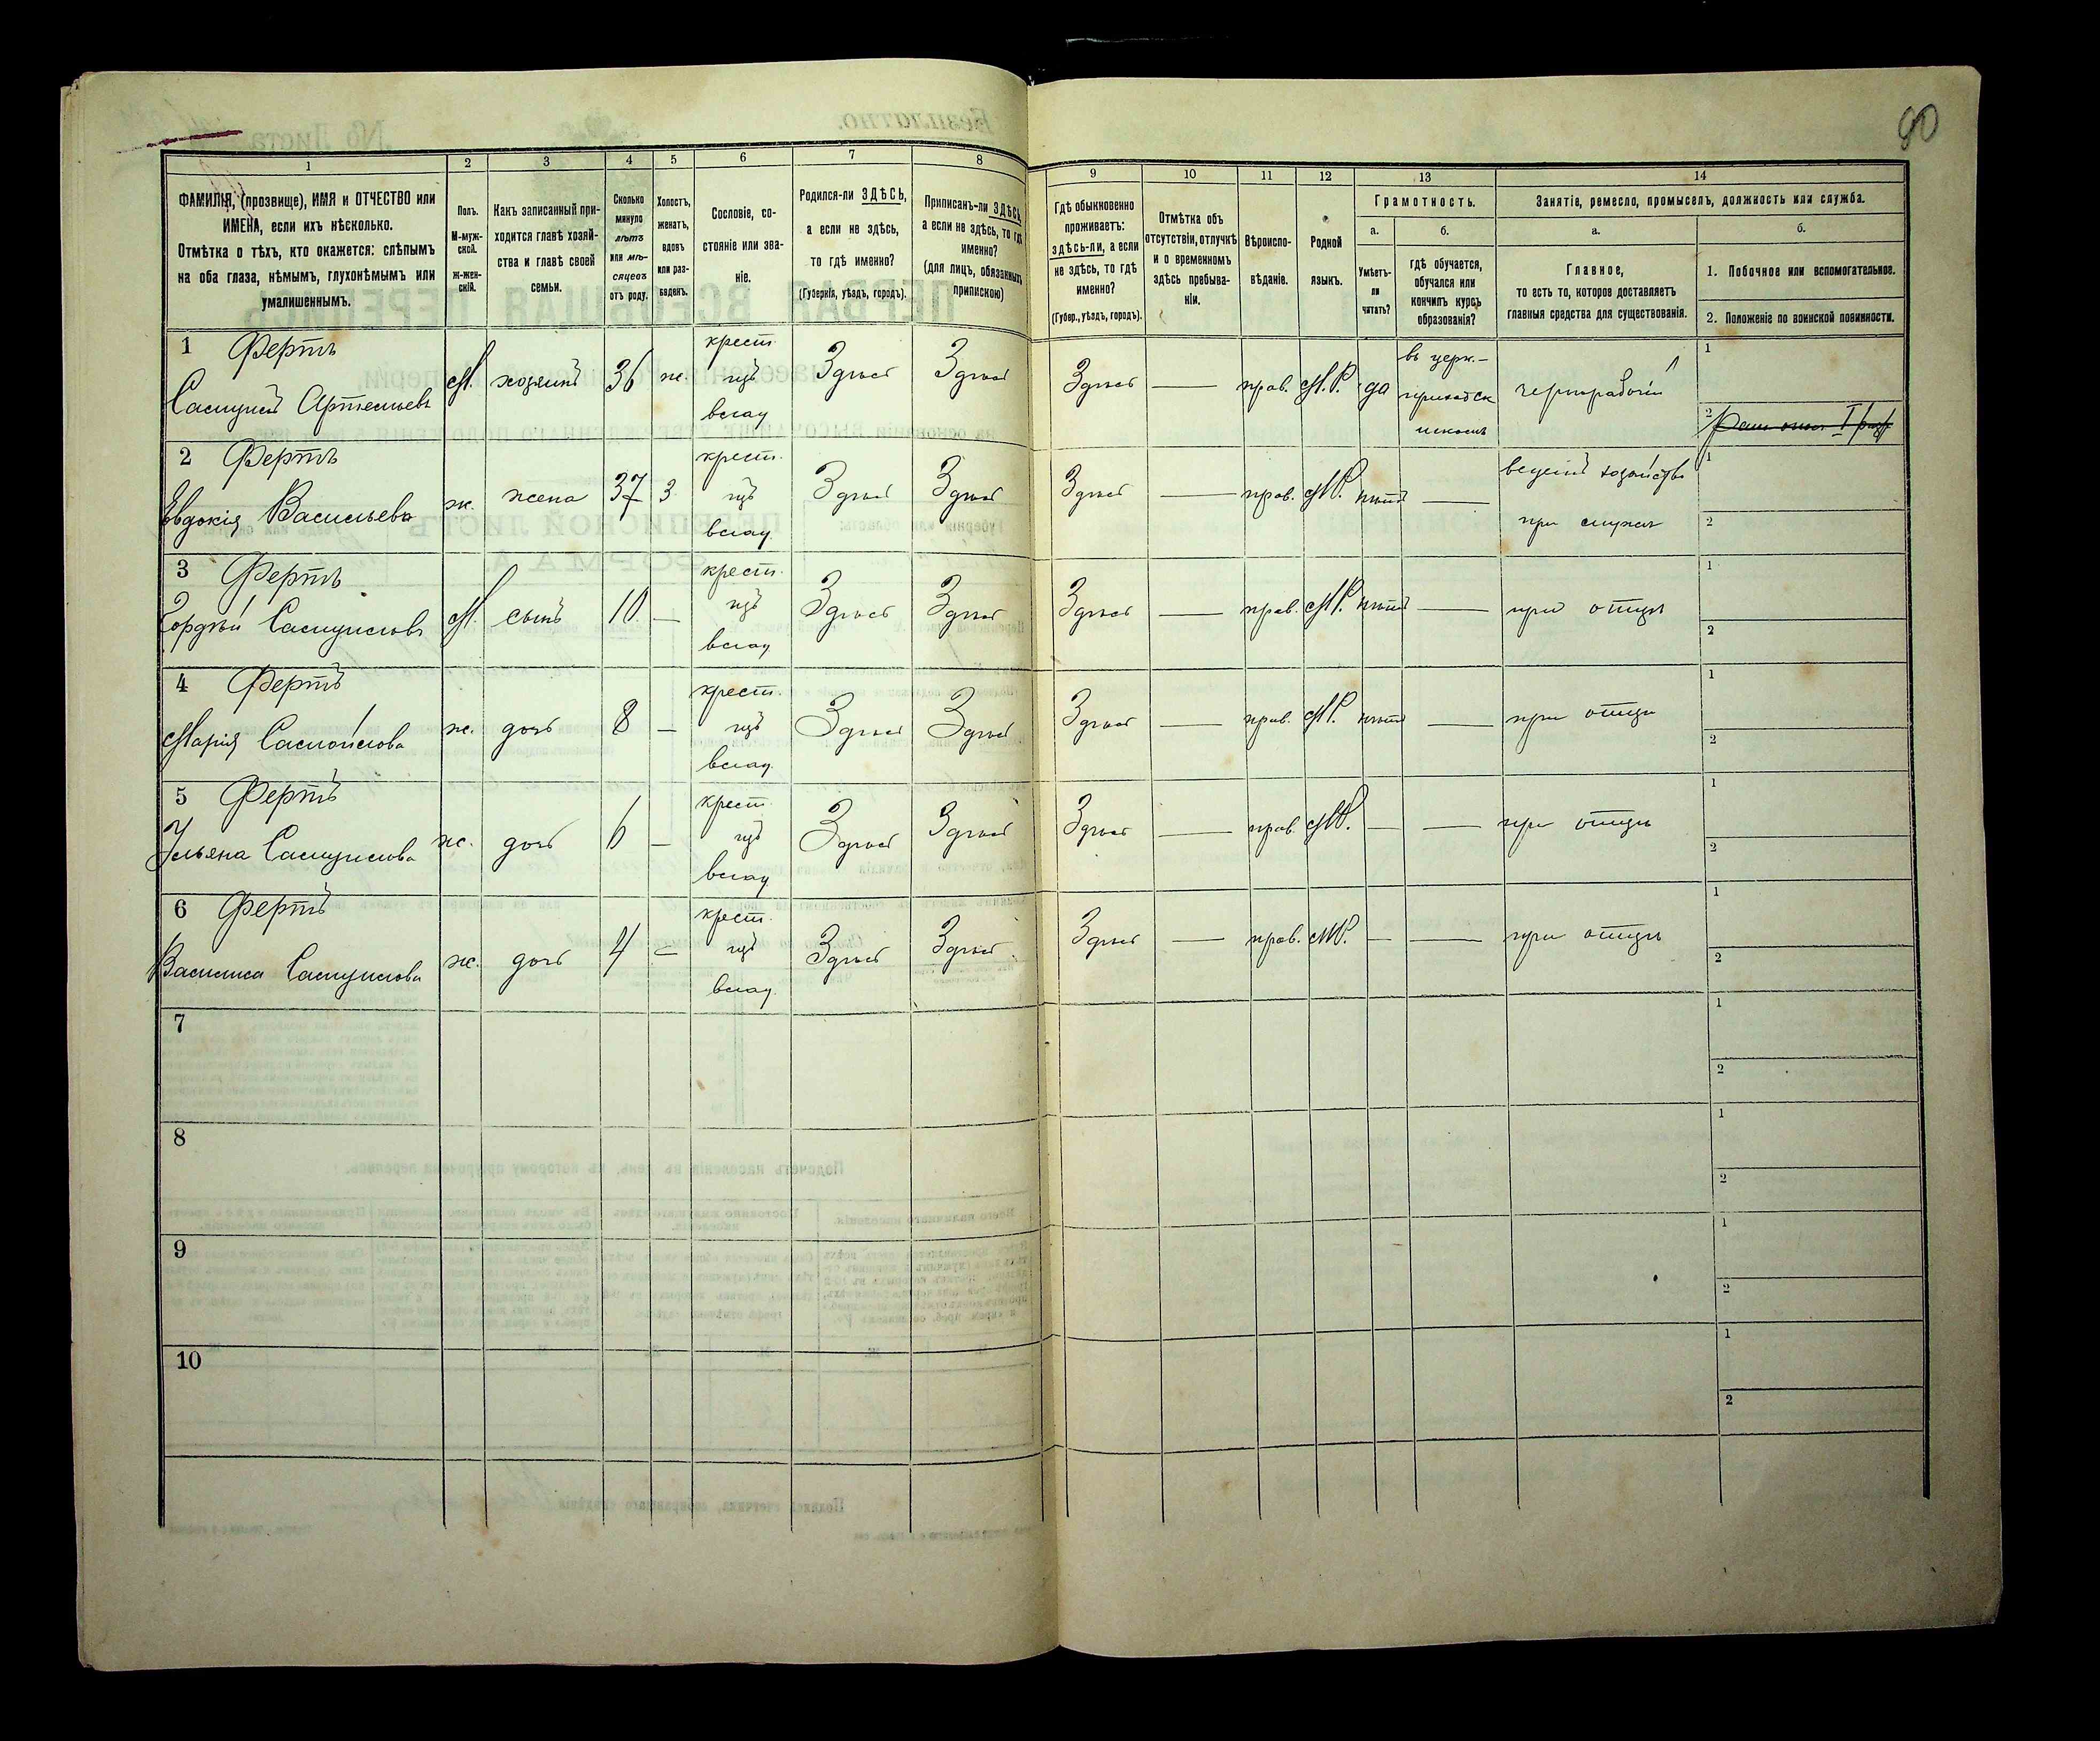 90
1 2 3 4 5 6 7 8 9 10 11 12 13 14
ФАМИЛІЯ, (прозвище), ИМЯ и ОТЧЕСТВО или
ИМЕНА, если ихъ нѣсколько.
Отмѣтка о тѣхъ, кто окажется: слѣпымъ
на оба глаза, нѣмымъ, глухонѣмымъ или
умалишеннымъ.
Полъ.
М-муж-
ской.
Ж-жен-
скій.
Какъ записанный при-
ходится главѣ хозяй-
ства и главѣ своей
семьи.
Сколько
минуло
лѣтъ
или мѣ-
сяцевъ
отъ роду.
Холостъ,
женатъ,
вдовъ
или раз-
веденъ.
Сословіе, со-
стояніе или зва-
ніе.
Родился-ли ЗДѢСЬ,
а если не здѣсь,
то гдѣ именно?
(Губернія, уѣздъ, городъ).
Приписанъ-ли ЗДѢСЬ,
а если не здѣсь, то гдѣ
именно?
(для лицъ, обязанныхъ
припискою)
Гдѣ обыкновенно
проживаетъ:
здѣсь-ли, а если
не здѣсь, то гдѣ
именно?
(Губер., уѣздъ, городъ).
Отмѣтка объ
отсутствіи, отлучкѣ
и о временномъ
здѣсь пребыва-
ніи.
Вѣроиспо-
вѣданіе.
Родной
языкъ.
Грамотность.
а.
Умѣетъ-
ли
читать?
б.
гдѣ обучается,
обучался или
кончилъ курсъ
образованія?
Занятіе, ремесло, промыселъ, должность или служба.
а.
Главное,
то есть то, которое доставляетъ
главныя средства для существованія.
б.
1. Побочное или вспомогательное.
2. Положеніе по воинской повинности.
1 Фертъ
Самуилъ Артемьевъ М. хозяинъ 36 ж. крест. изъ влад. Здѣсь Здѣсь Здѣсь — прав. М.Р. да въ церк.- приходск школѣ чернорабочій 1
2
2 Фертъ
Евдокія Васильева ж. жена 37 з крест. изъ влад. Здѣсь Здѣсь Здѣсь — прав. М.Р. нѣтъ — ведетъ хозяйство при мужѣ 1
2
3 Фертъ
Гордѣй Самуиловъ М. сынъ 10 — крест. изъ влад Здѣсь Здѣсь Здѣсь — прав. М.Р. нѣтъ — при отцѣ 1
2
4 Фертъ
Марія Самойлова ж. дочь 8 — крест. изъ влад. Здѣсь Здѣсь Здѣсь — прав. М.Р. нѣтъ — при отцѣ 1
2
5 Фертъ
Ульяна Самуилова ж. дочь 6 — крест. изъ влад Здѣсь Здѣсь Здѣсь — прав. М.Р. — — при отцѣ 1
2
6 Фертъ
Василиса Самуилова ж. дочь 4 — крест. изъ влад. Здѣсь Здѣсь Здѣсь — прав. М.Р. — — при отцѣ 1
2
7 1
2
8 1
2
9 1
2
10 1
2